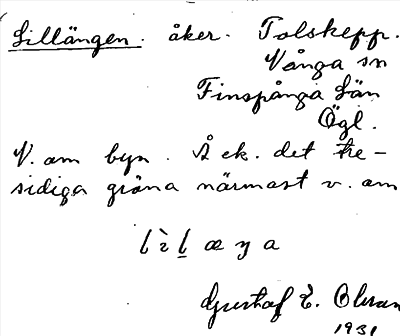 Lillängen. åker. Tolskepp.
Vånga sn
Finspånga Län
Ögl.
V. om byn. Å ek. det tre-
sidiga gröna närmast v. om
l i l æ ŋ a
Gustaf E. Olsson
1931